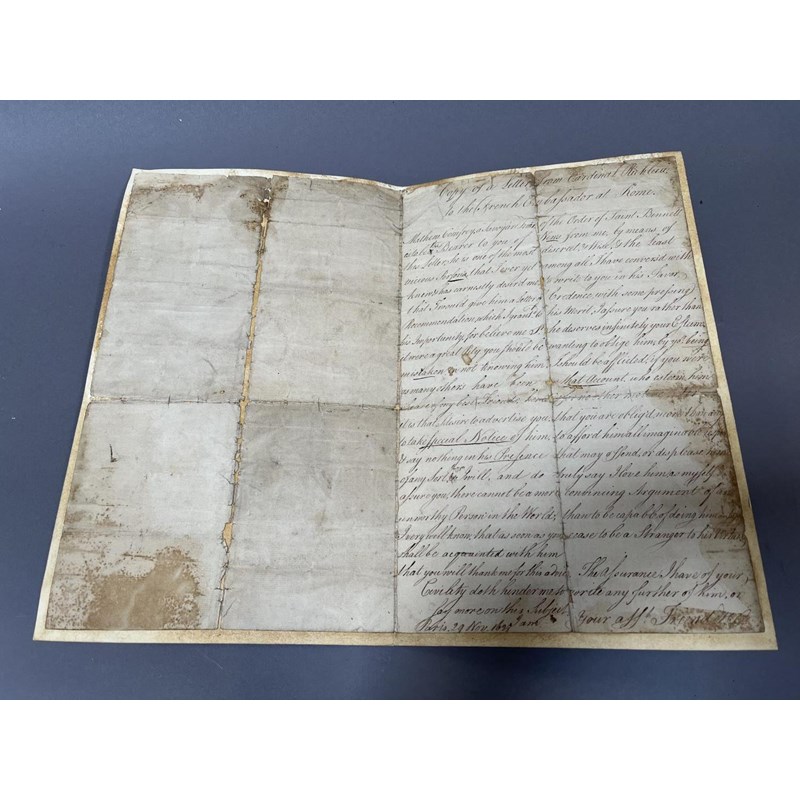 Copy of a Letter from Cardinal
to the French Ambassador at Rome.
of the Order of Saint Bennett
Bearer to you, of News from me, by means of
this Letter, he is one of the most discreet & the Least
vicious Persons, that I ever yet among all I have convers'd with
know, & has earnestly desired me to write to you in his Favor
that I would give him a Letter Credence, with some pressing
Recommendation, which I grant to his I assure you rather than
his Importunity, for believe me he deserves infinitely your Esteem
& it were a great Pity you should be wanting to oblige him, by being
mistaken in not knowing him, I should be afflicted, if you were
as many others have been, that Account, who esteem him
of my best Friends
it is that I desire to advertise you, that you are oblig'd, more than
to take special Notice of him, to afford him all imaginable
& say nothing in his Presence that may offend, or displease him
of any Sort, will, and do truly say I love him as myself, &
assure you, there cannot be a more convincing Argument of an
unworthy Person in the World, than to be capable of doing him
I very well know, that as soon as you cease to be a Stranger to his
shall be acquainted with him
that you will thank me for this The Assurance I have of your
Civility doth hinder me to write any further of him, or
say more on the Subject
Paris, 29 Nov. and your aff.t Friend